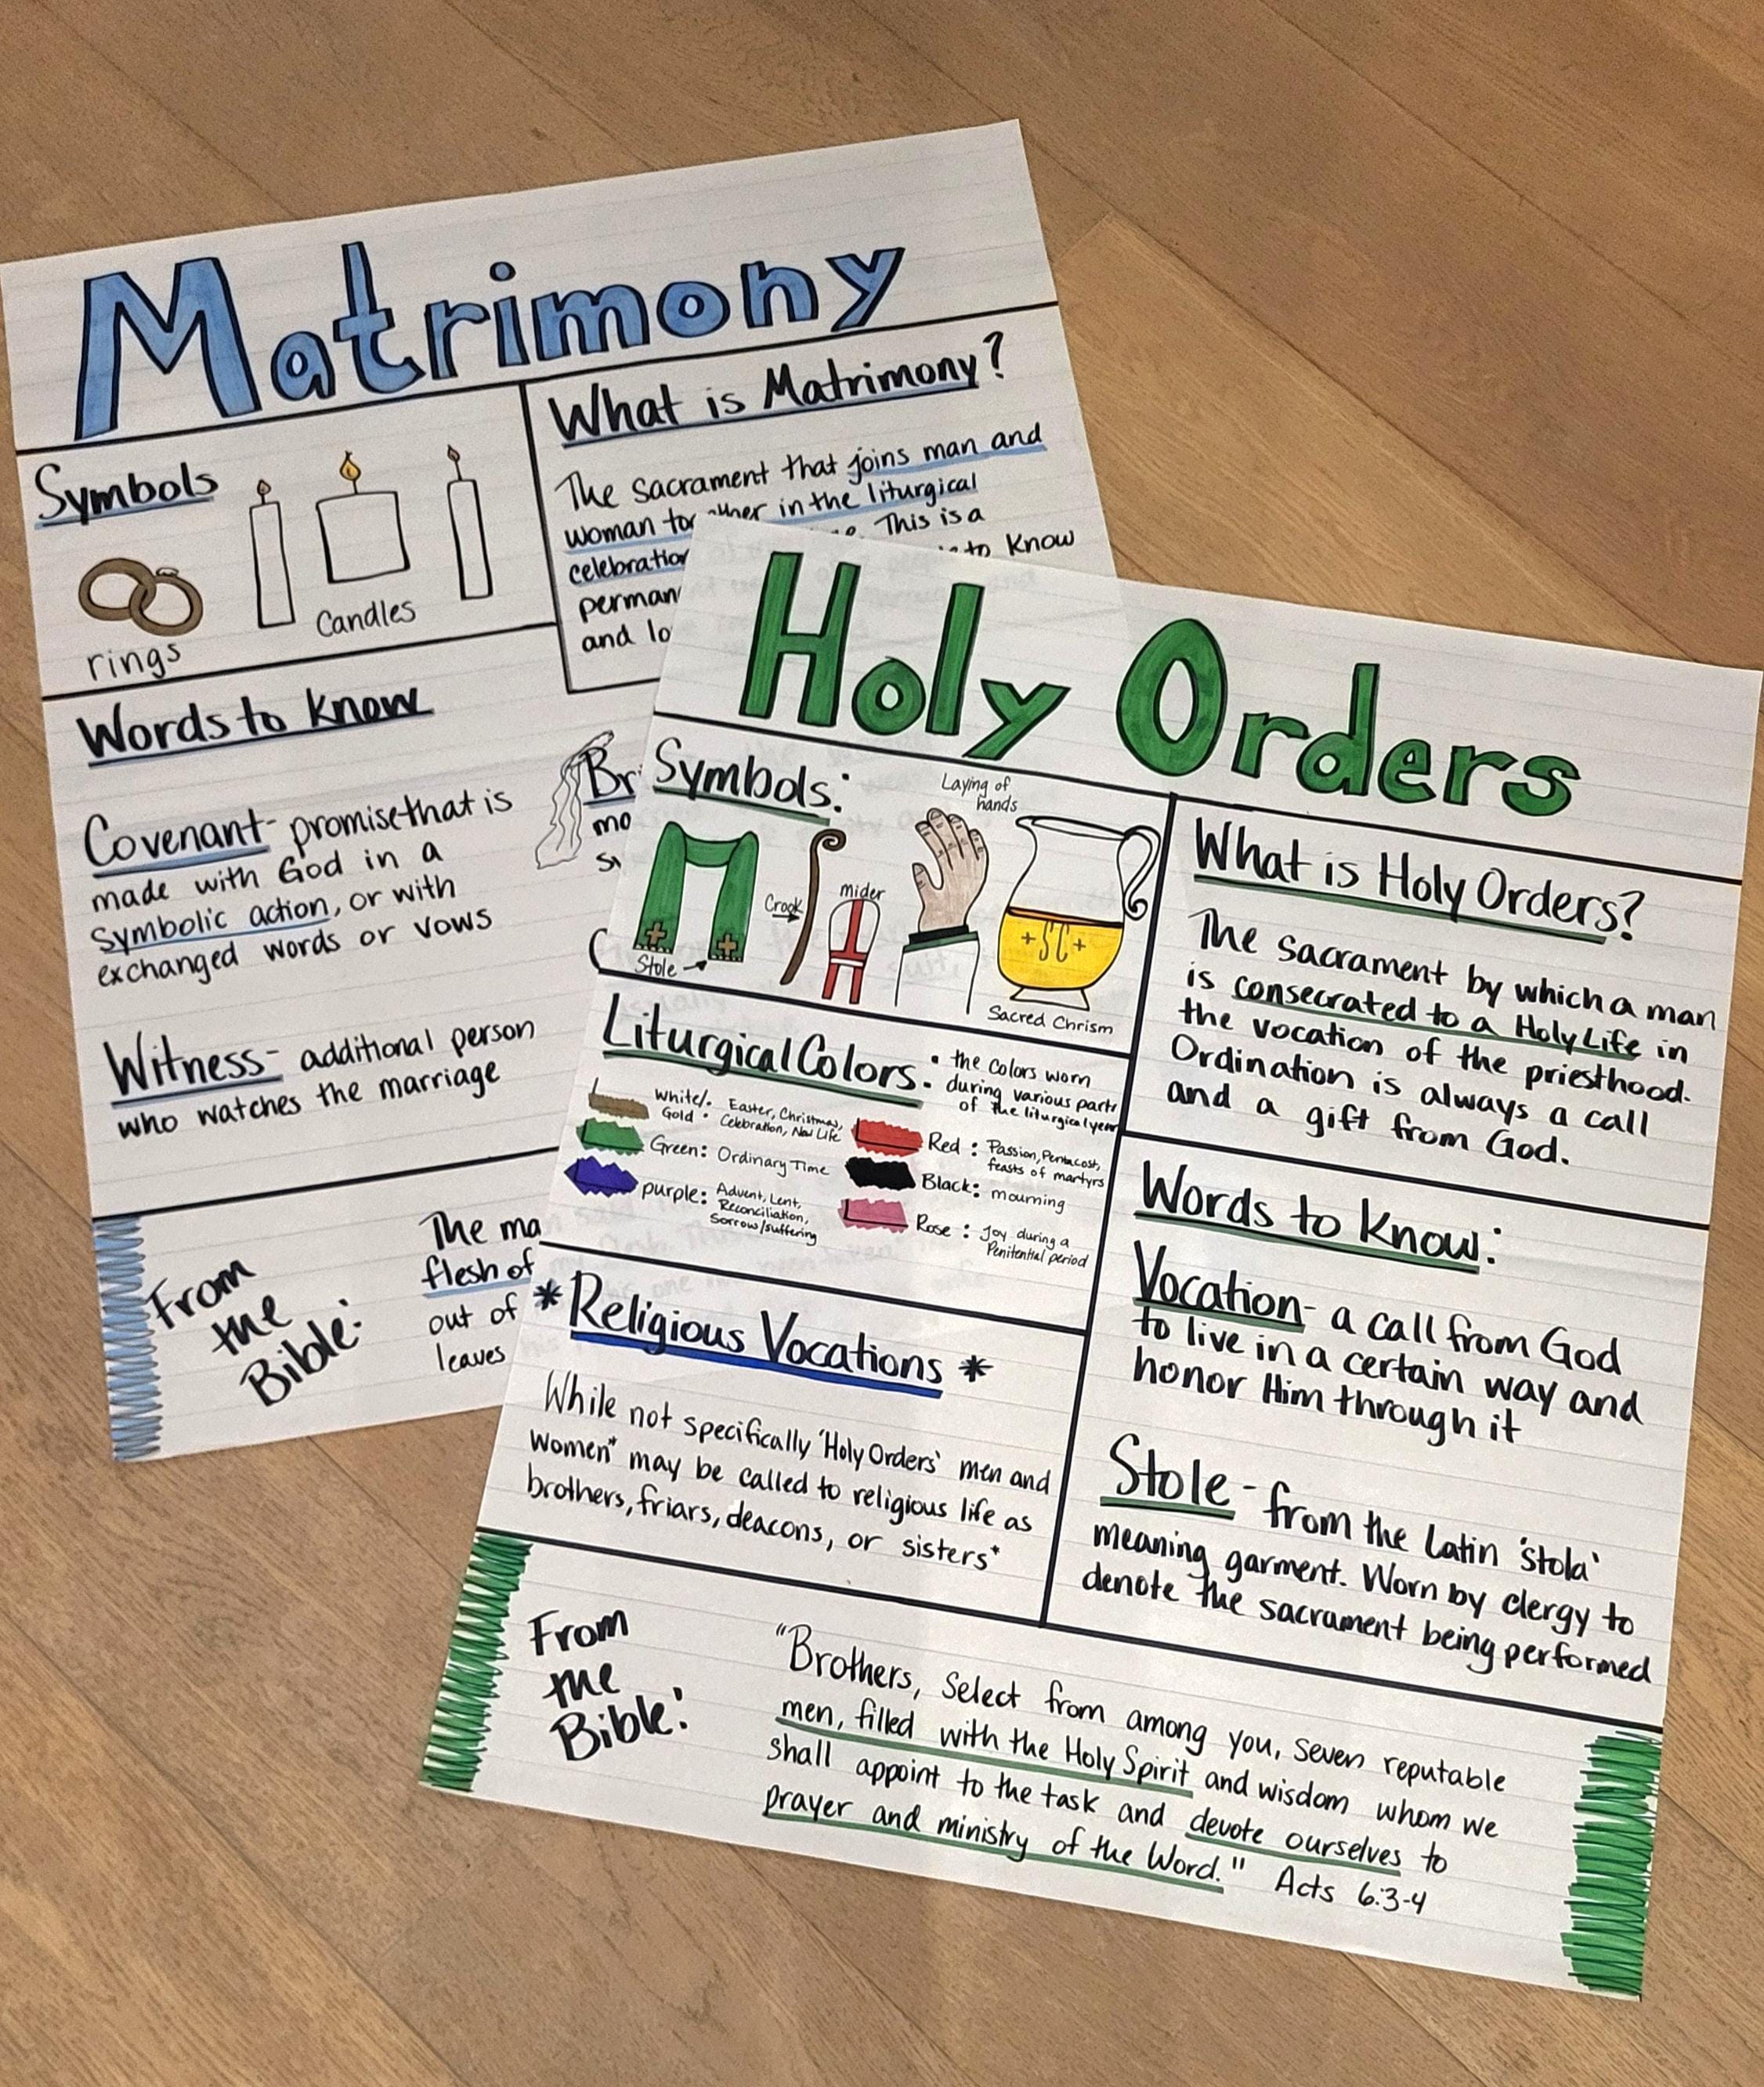 Matrimony
Symbols
rings
Candles
What is Matrimony?
The sacrament that joins man and
woman in the liturgical
This is a
to know
and
Words to know
Covenant- promise that is
made with God in a
symbolic action, or with
exchanged words or vows
Witness- additional person
who watches the marriage
From
the
Bible:
The
flesh of
out of
leaves
Holy Orders
Symbols:
Stole
Crook
mider
Laying of
hands
+SC+
Sacred Chrism
What is Holy Orders?
The sacrament by which a man
is consecrated to a Holy Life in
the vocation of the priesthood.
Ordination is always a call
and a gift from God.
Liturgical Colors:
• the colors worn
during various parts
of the liturgical year
White/: Easter, Christmas,
Gold Celebration, New Life
Green: Ordinary Time
purple: Advent, Lent,
Reconciliation,
Sorrow/suffering
Red: Passion, Pentacost,
feasts of martyrs
Black: mourning
Rose: Joy during a
Penitential period
Words to know:
Vocation- a call from God
to live in a certain way and
honor Him through it
Stole- from the Latin 'stola'
meaning garment. Worn by clergy to
denote the sacrament being performed
*Religious Vocations*
While not specifically 'Holy Orders' men and
women* may be called to religious life as
brothers, friars, deacons, or sisters*
From
the
Bible:
"Brothers, Select from among you, seven reputable
men, filled with the Holy Spirit and wisdom whom we
shall appoint to the task and devote ourselves to
prayer and ministry of the Word." Acts 6:3-4